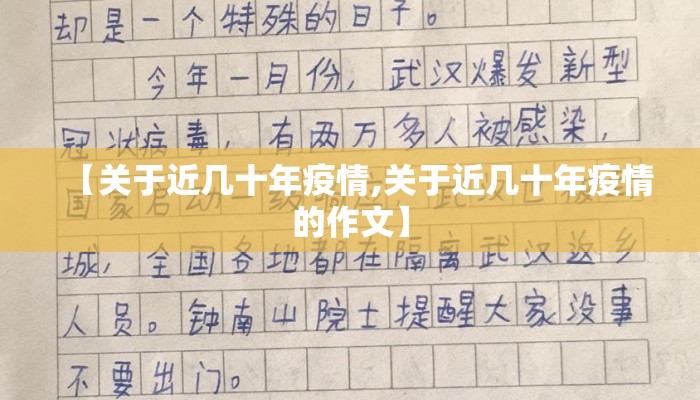 却是一个特殊的日子。
今年一月份，武汉爆发新型
冠状病毒，有两万多人被感染，
【关于近几十年疫情,关于近几十年疫情
的作文】
国家启动一级
城，全国各地都在隔离武汉返乡
人员。钟南山院士提醒大家没事
不要出门。